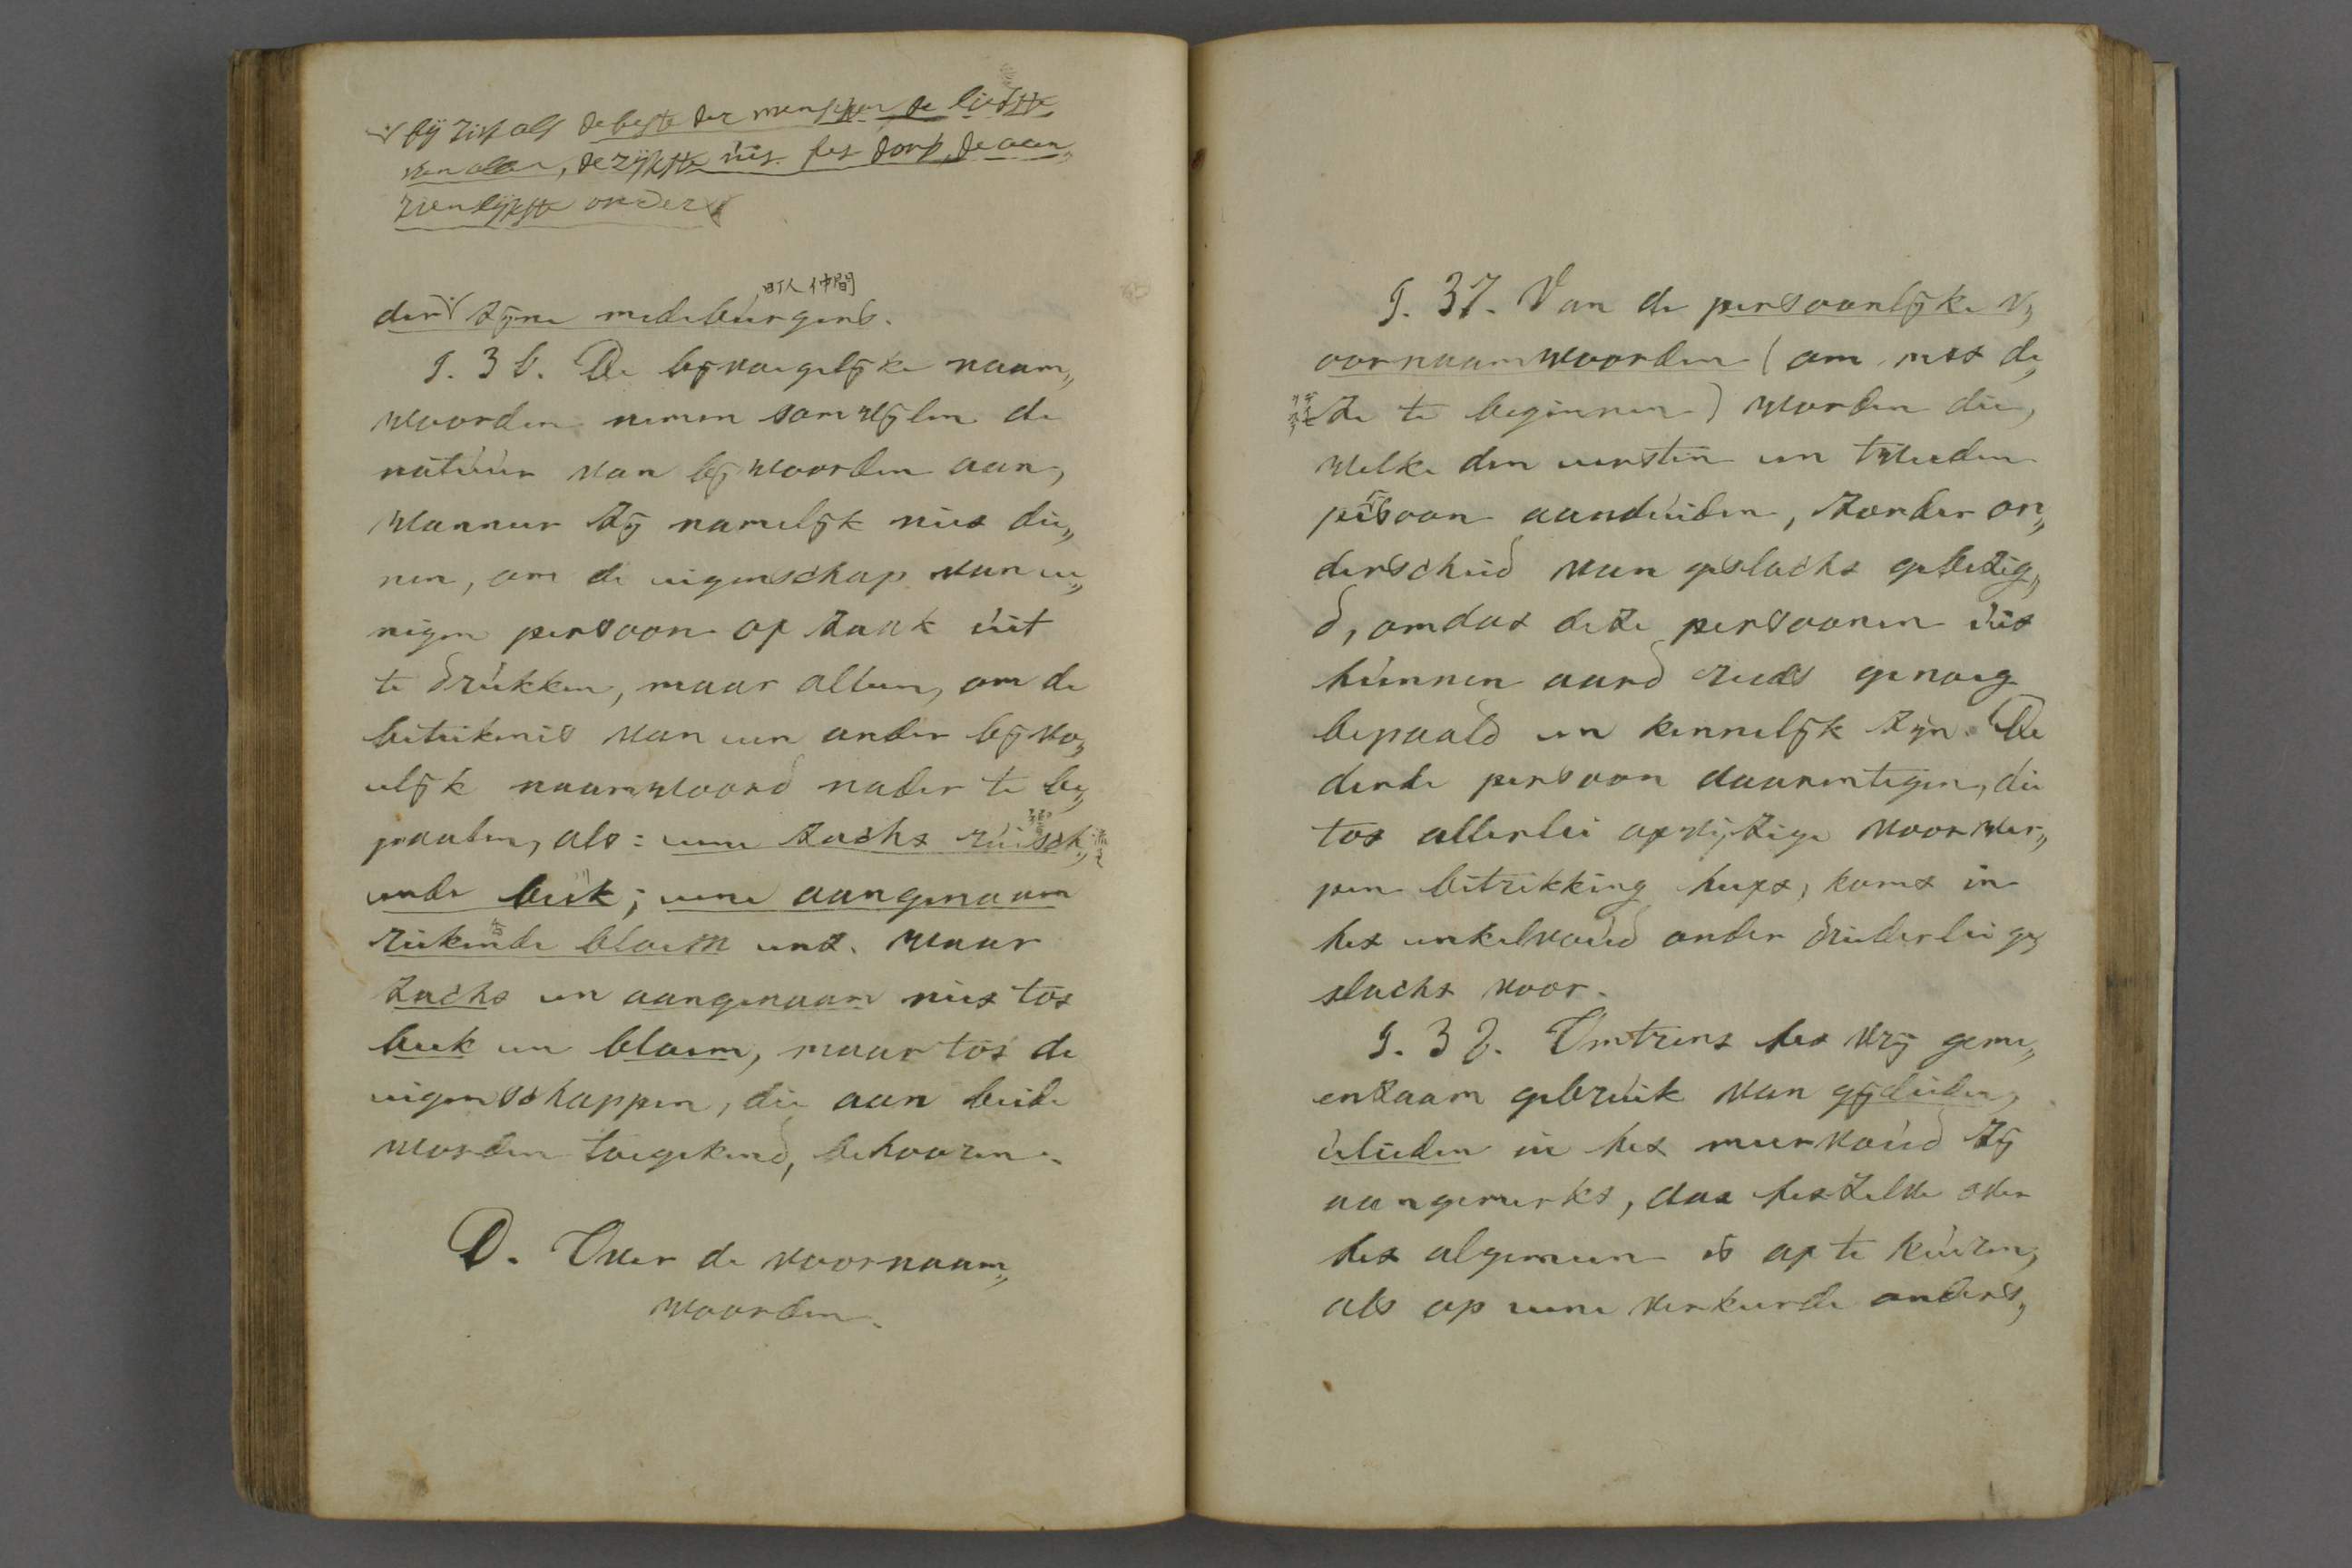 bij zich als de beste der menschen, de liefste
van allen, de rijkste uit het dorp, de aan„
zienlijkste onder
町人仲間
der zijne medeburgers.
§. 36. De bijvoegelijke naam„
woorden nemen somwijlen de
natuur van bijwoorden aan,
wanneer zij namelijk niet die„
nen, om de eigenschap van ee„
nigen persoon of zaak uit
te drukken, maar alleen, om de
beteekenis van een ander bijvo„
elijk naamwoord nader te be„
paalen, als: eene zacht ruisch„
ende beek; eene aangenaam
riekende bloem enz. waar
zacht en aangenaam niet tot
beek en bloem, maar tot de
eigenschappen, die aan beide
worden toegekend, behooren.
D. Over de voornaam„
woorden.
§. 37. Van de persoonlijke v„
oornaamwoorden (om met de„
ze te beginnen) worden die,
welke den eersten en tweeden
persoon aanduiden, zonder on„
derscheid van geslacht gebezig„
d, omdat deze persoonen uit
hunnen aard reeds genoeg
bepaald en kennelijk zijn. De
derde persoon daarentegen, die
tot allerlei afwijzige voorwer„
pen betrekking heeft, komt in
het enkelvoud onder driederlei ge„
slacht voor.
§. 38. Omtrent het vrij geme„
enzaam gebruik van gijlieden,
ulieden in het meervoud zij
aangemerkt, dat hetzelve over
het algemeen is af te keuren,
als op eene verkeerde onders„